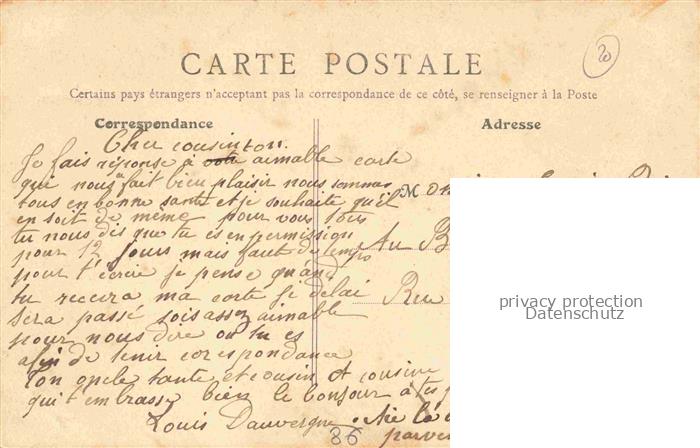 20
CARTE POSTALE
Certains pays étrangers n'acceptant pas la correspondance de ce côté, se renseigner à la Poste
Correspondance
Adresse
Cher cousin ton.
Je fais réponse à votre aimable carte
qui nous a fait bien plaisir nous sommes
tous en bonne santé et je souhaite qu'il
en soit de même pour vous tous
tu nous dis que tu es en permission
pour 12 jours mais faut de temps
pour t'écrire je pense quand
tu recevra ma carte le délai
sera passé sois assez aimable
pour nous dire où tu es
afin de tenir correspondance
Ton oncle tante et cousin et cousine
qui t'embrasse bien le bonjour à tes
Louis Dauvergne
86
M
Au B
Rue
privacy protection
Datenschutz